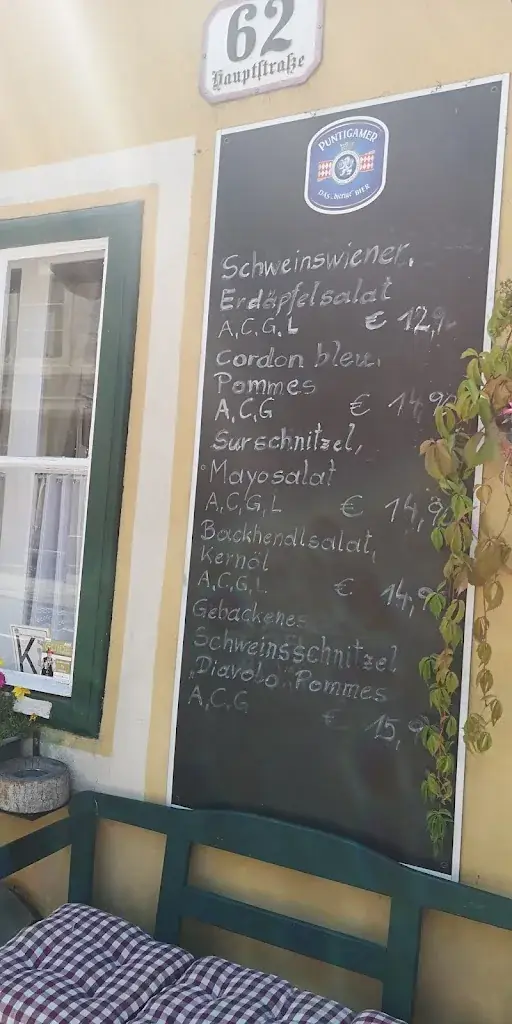 62
Hauptstraße
PUNTIGAMER
DAS „bierige“ BIER
Schweinswiener,
Erdäpfelsalat
A,C,G,L € 12,9
Cordon bleu,
Pommes
A,C,G € 14,90
Surschnitzel,
Mayosalat
A,C,G,L € 14,9
Backhendlsalat,
Kernöl
A,C,G,L € 14,9
Gebackenes
Schweinsschnitzel
„Diavolo“ Pommes
A,C,G € 15,9